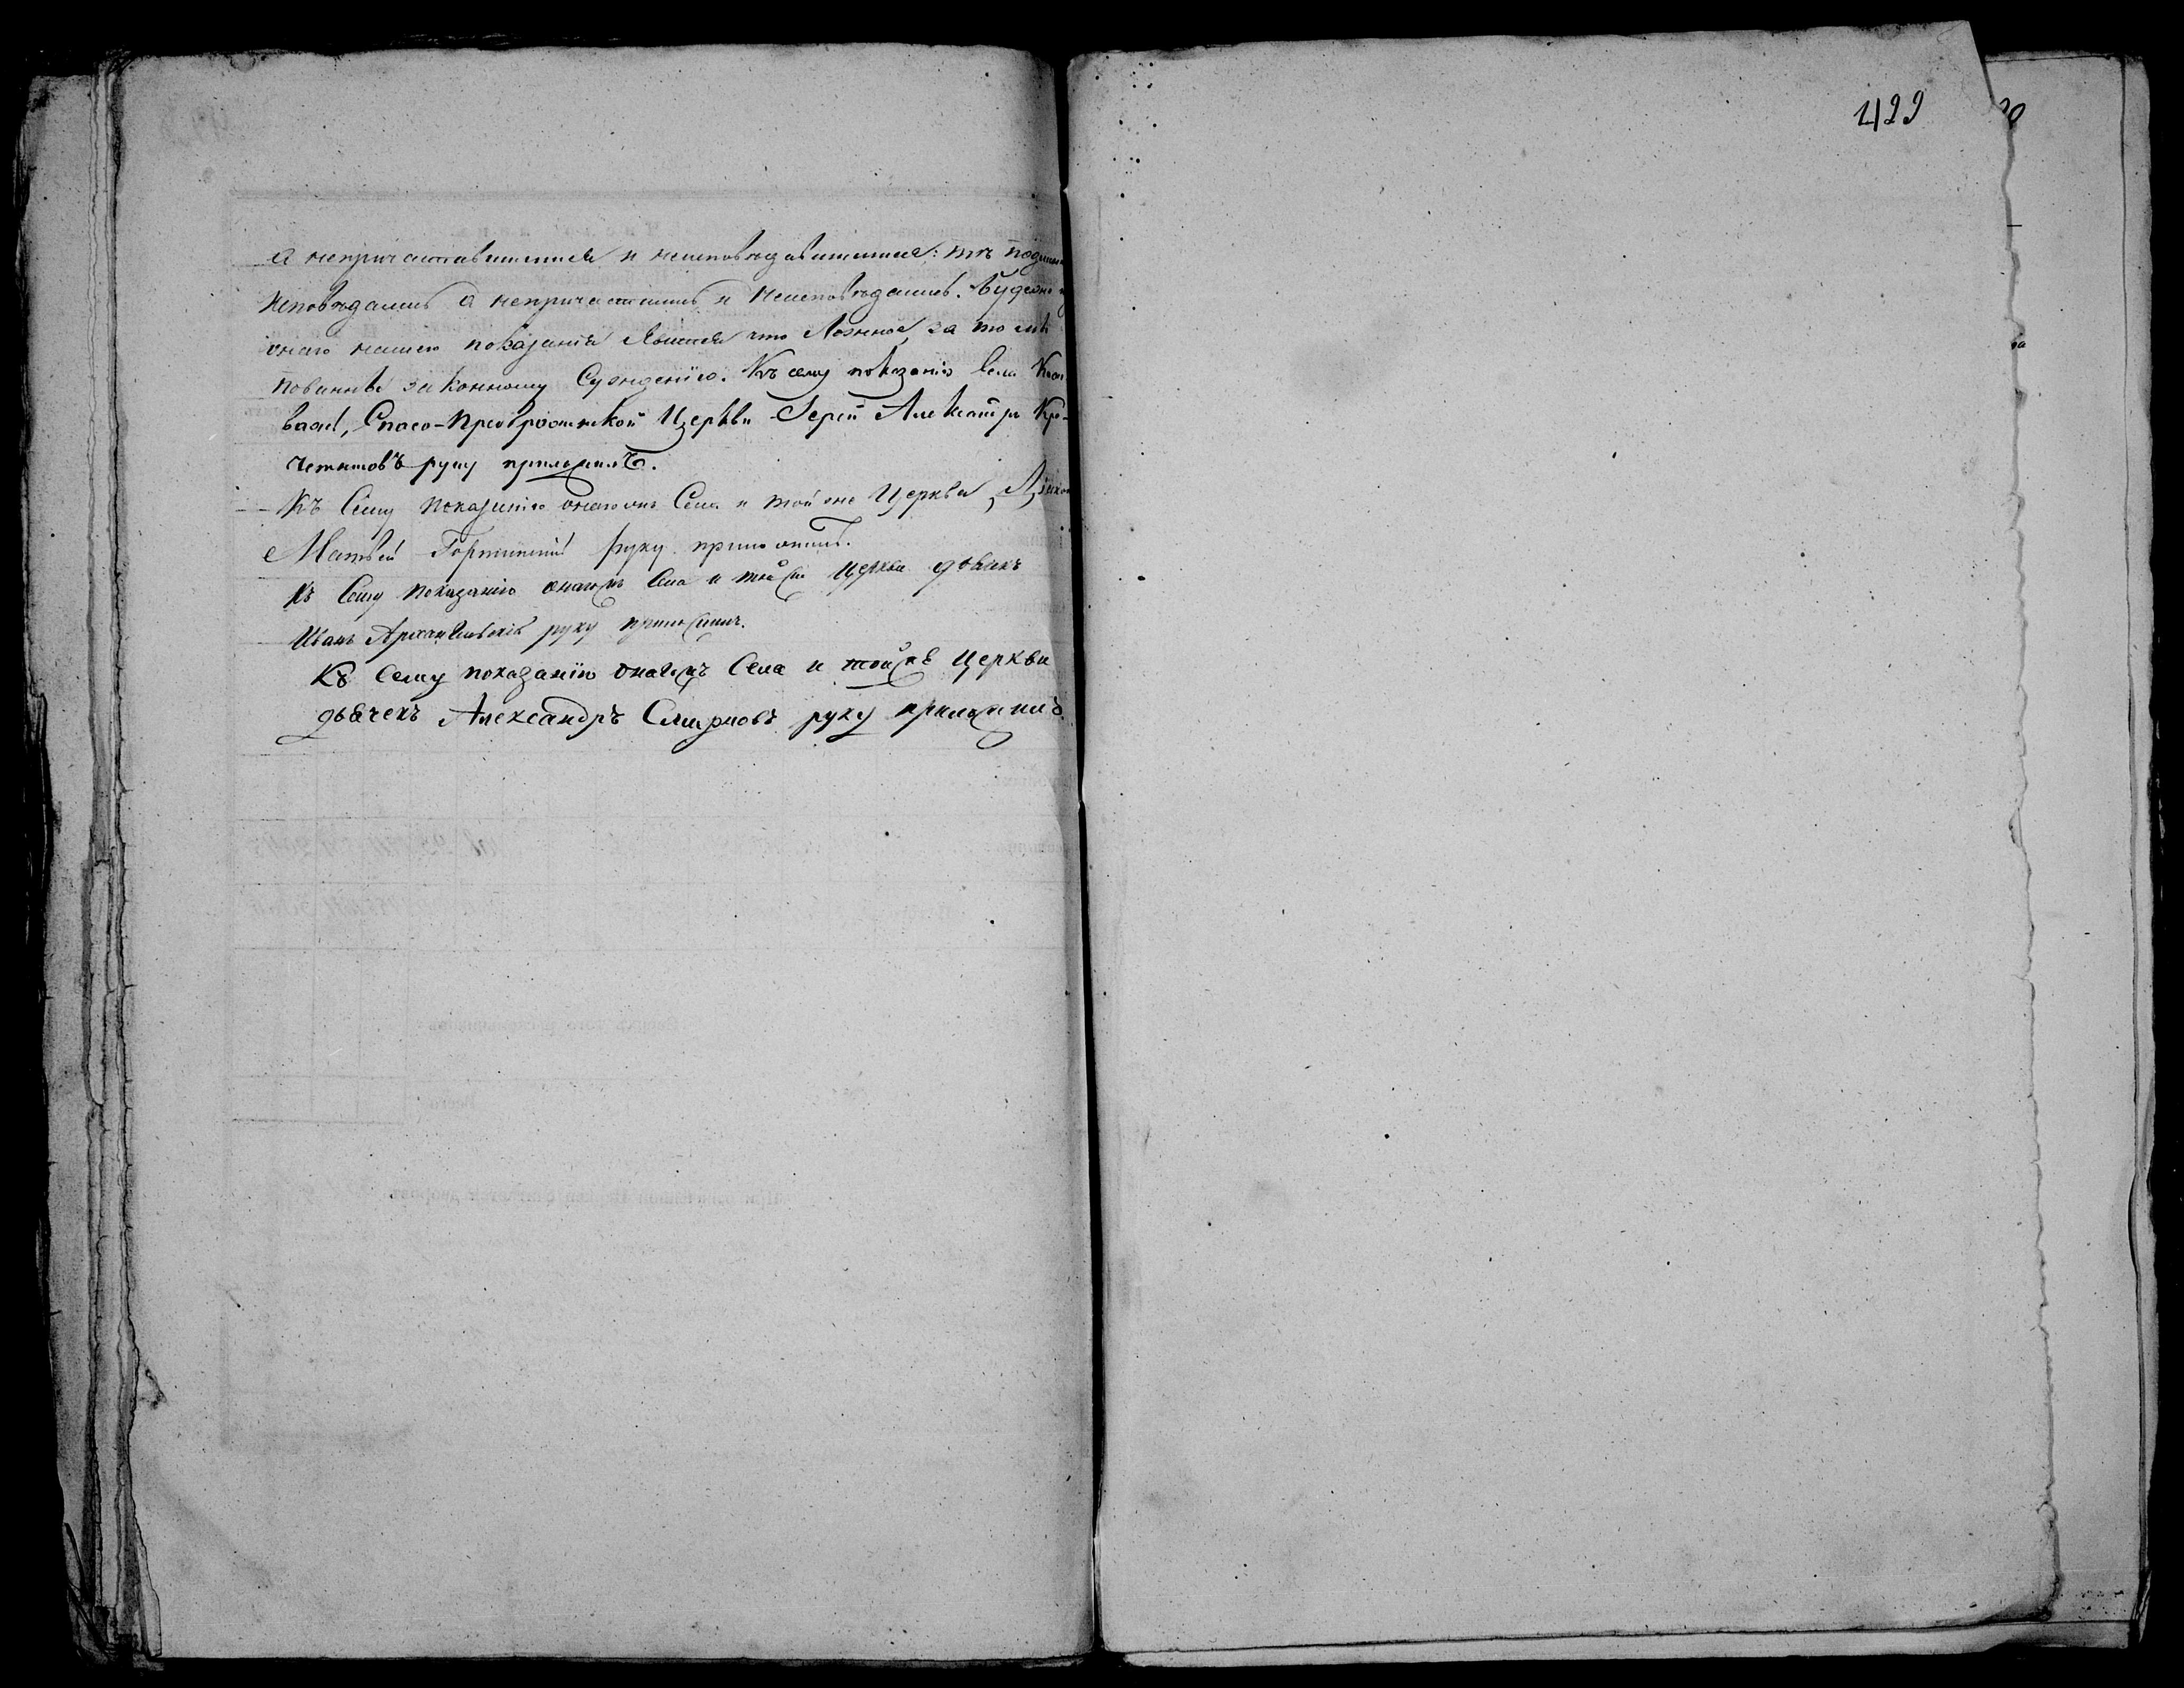 499
а непричастившимися и неисповѣдавшимися: тѣ подлинно
неповѣдались а непричастились и неисповѣдались. Буде же и
онаго нашего показанія явится что ложное, за то мы
повинны законному сужденію. Къ сему показанію Села
Спасо-Преображенской Церкви Іерей Александръ Кре-
четитовъ руку приложилъ.
Къ сему показанію онагожъ Села и той же Церкви, Діакон
Матвѣй руку приложилъ.
Къ сему показанію онагожъ Села и той же Церкви дьячекъ
Иванъ Архангельскій руку приложилъ.
Къ сему показанію онагожъ Села и той же Церкви
дьячекъ Александръ Смирновъ руку приложилъ.